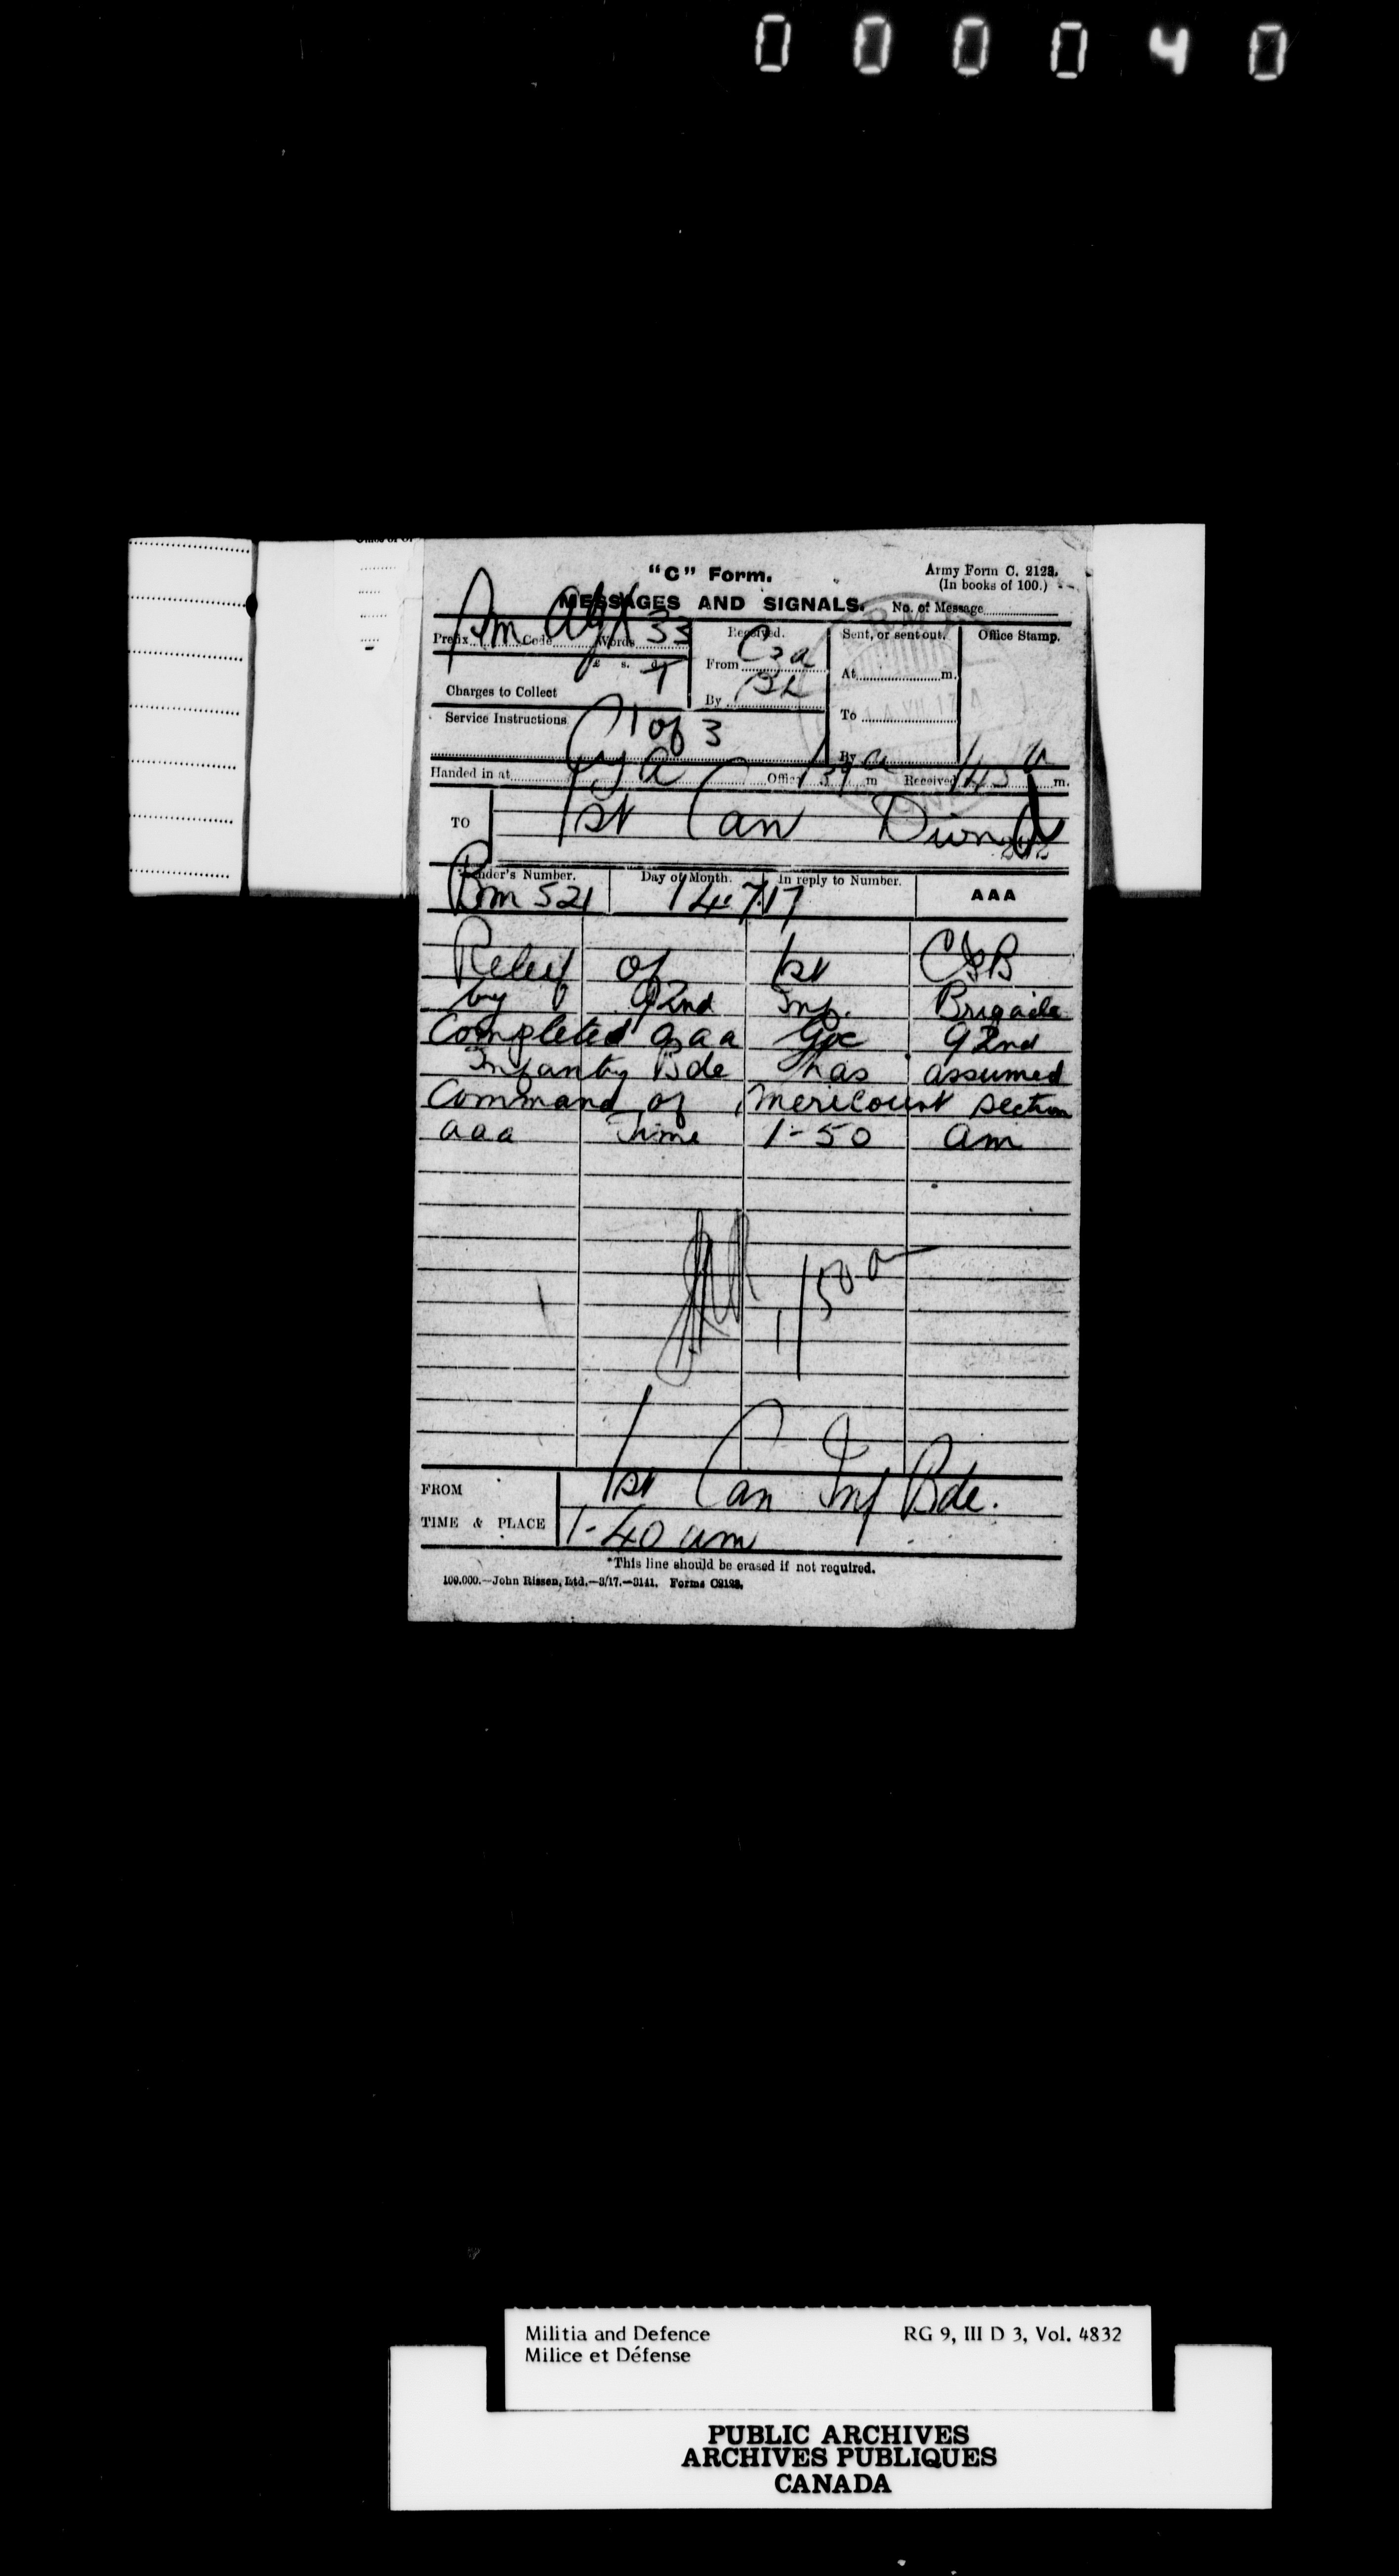 000040
"C" Form.
Army Form C. 2123.
(In books of 100.)
MESSAGES AND SIGNALS.
No. of Message
Prefix Sm Code Words 33
Received.
From Cza
By
Sent, or sent out.
At m.
To
By
Office Stamp.
£ s. d.
Charges to Collect
Service Instructions
1 of 3
Handed in at Cza Office 1 39 a m Received 1 45 a m.
TO 1st Can Divn
Sender's Number. Day of Month. In reply to Number. AAA
Bm 521 14.7.17
Relief of 1st CIB
by 92nd Inf. Brigade
Completed aaa Goc 92nd
Infantry Bde has assumed
Command of Mericourt section
aaa Time 1-50 am
1 50 a
FROM 1st Can Inf Bde.
TIME & PLACE 1-40 am
*This line should be erased if not required.
Militia and Defence RG 9, III D 3, Vol. 4832
Milice et Défense
PUBLIC ARCHIVES
ARCHIVES PUBLIQUES
CANADA